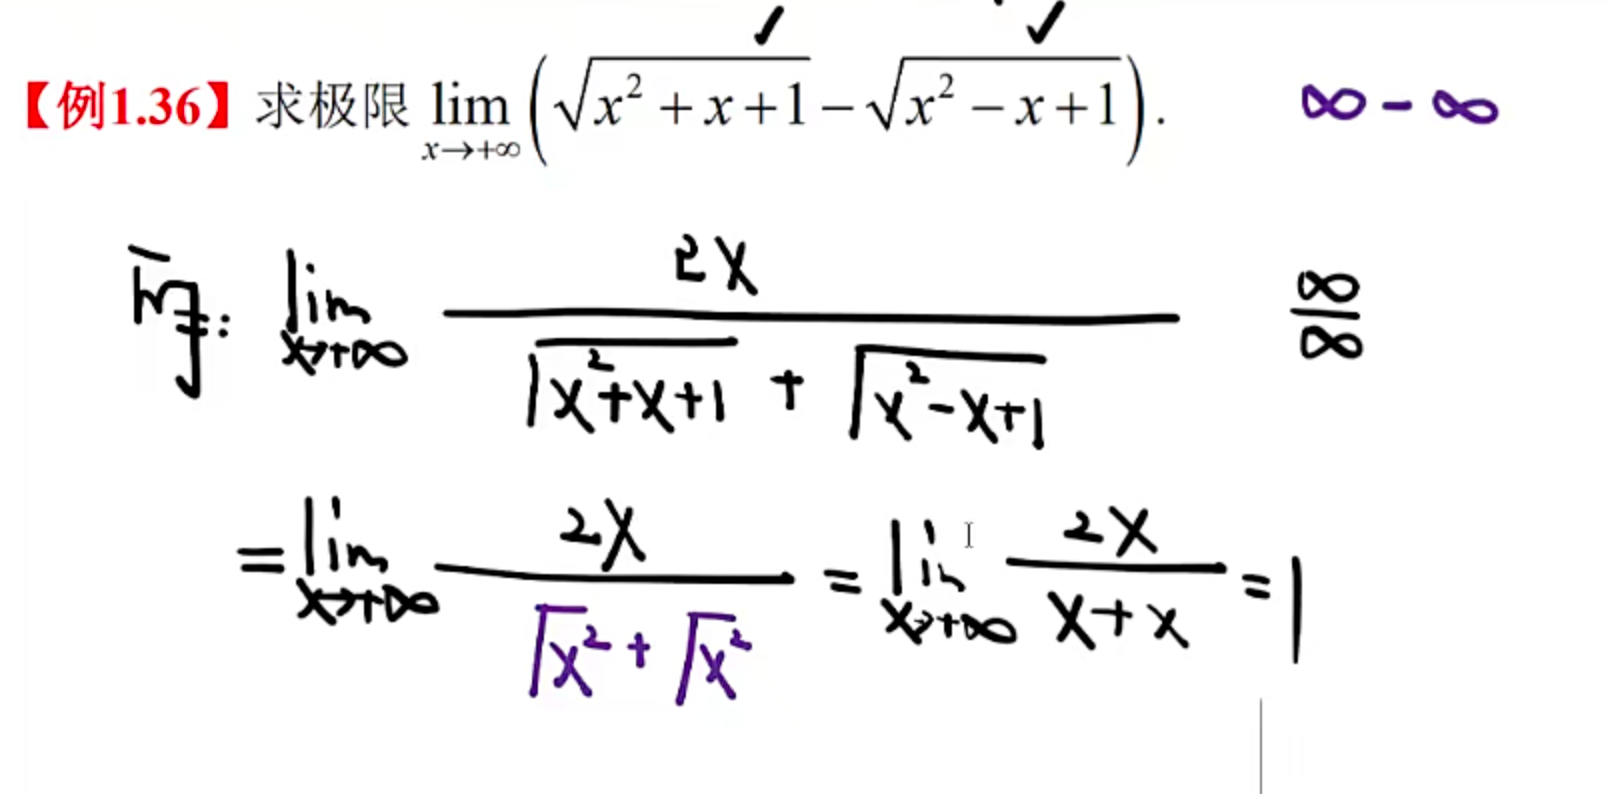 【例1.36】求极限 lim x→+∞ (√(x² + x + 1) − √(x² − x + 1)). ∞ − ∞
原式: lim x→+∞ 2x / (√(x²+x+1) + √(x²−x+1)) ∞/∞
= lim x→+∞ 2x / (√x² + √x²) = lim x→+∞ 2x / (x+x) = 1